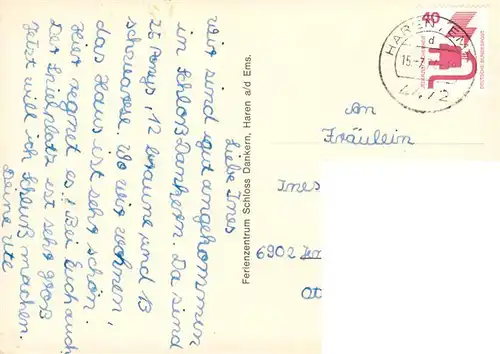 Liebe Ines
Wir sind gut angekommen
im Schloß Dankern. Da sind
26 Ponys, 12 braune und 13
schwarze. Wo wir wohnen,
das Haus ist sehr schön.
Hier regnet es! Bei Euch auch
Der Spielplatz ist sehr groß
Jetzt will ich Schluß machen.
Deine Ute
Ferienzentrum Schloss Dankern, Haren a/d Ems.
40
DEUTSCHE BUNDESPOST
HAREN, EMS
d
15.-7.
4472
An
Fräulein
Ines
6902